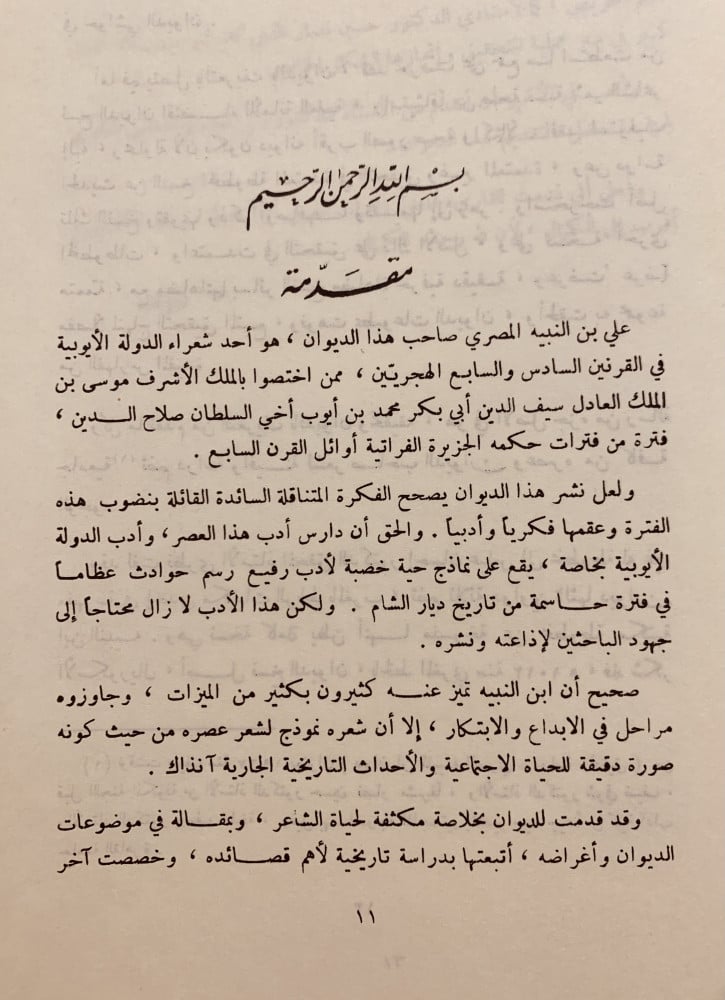 بسم الله الرحمن الرحيم
مقدّمة
علي بن النبيه المصري صاحب هذا الديوان ، هو أحد شعراء الدولة الأيوبية
في القرنين السادس والسابع الهجريّين ، ممن اختصوا بالملك الأشرف موسى بن
الملك العادل سيف الدين أبي بكر محمد بن أيوب أخي السلطان صلاح الدين ،
فترة من فترات حكمه الجزيرة الفراتية أوائل القرن السابع .
ولعل نشر هذا الديوان يصحح الفكرة المتناقلة السائدة القائلة بنضوب هذه
الفترة وعقمها فكرياً وأدبياً . والحق أن دارس أدب هذا العصر ، وأدب الدولة
الأيوبية بخاصة ، يقع على نماذج حية خصبة لأدب رفيع رسم حوادث عظاماً
في فترة حاسمة من تاريخ ديار الشام . ولكن هذا الأدب لا زال محتاجاً إلى
جهود الباحثين لإذاعته ونشره .
صحيح أن ابن النبيه تميز عنه كثيرون بكثير من الميزات ، وجاوزوه
مراحل في الابداع والابتكار ، إلا أن شعره نموذج لشعر عصره من حيث كونه
صورة دقيقة للحياة الاجتماعية والأحداث التاريخية الجارية آنذاك .
وقد قدمت للديوان بخلاصة مكثفة لحياة الشاعر ، وبمقالة في موضوعات
الديوان وأغراضه ، أتبعتها بدراسة تاريخية لأهم قصائده ، وخصصت آخر
١١